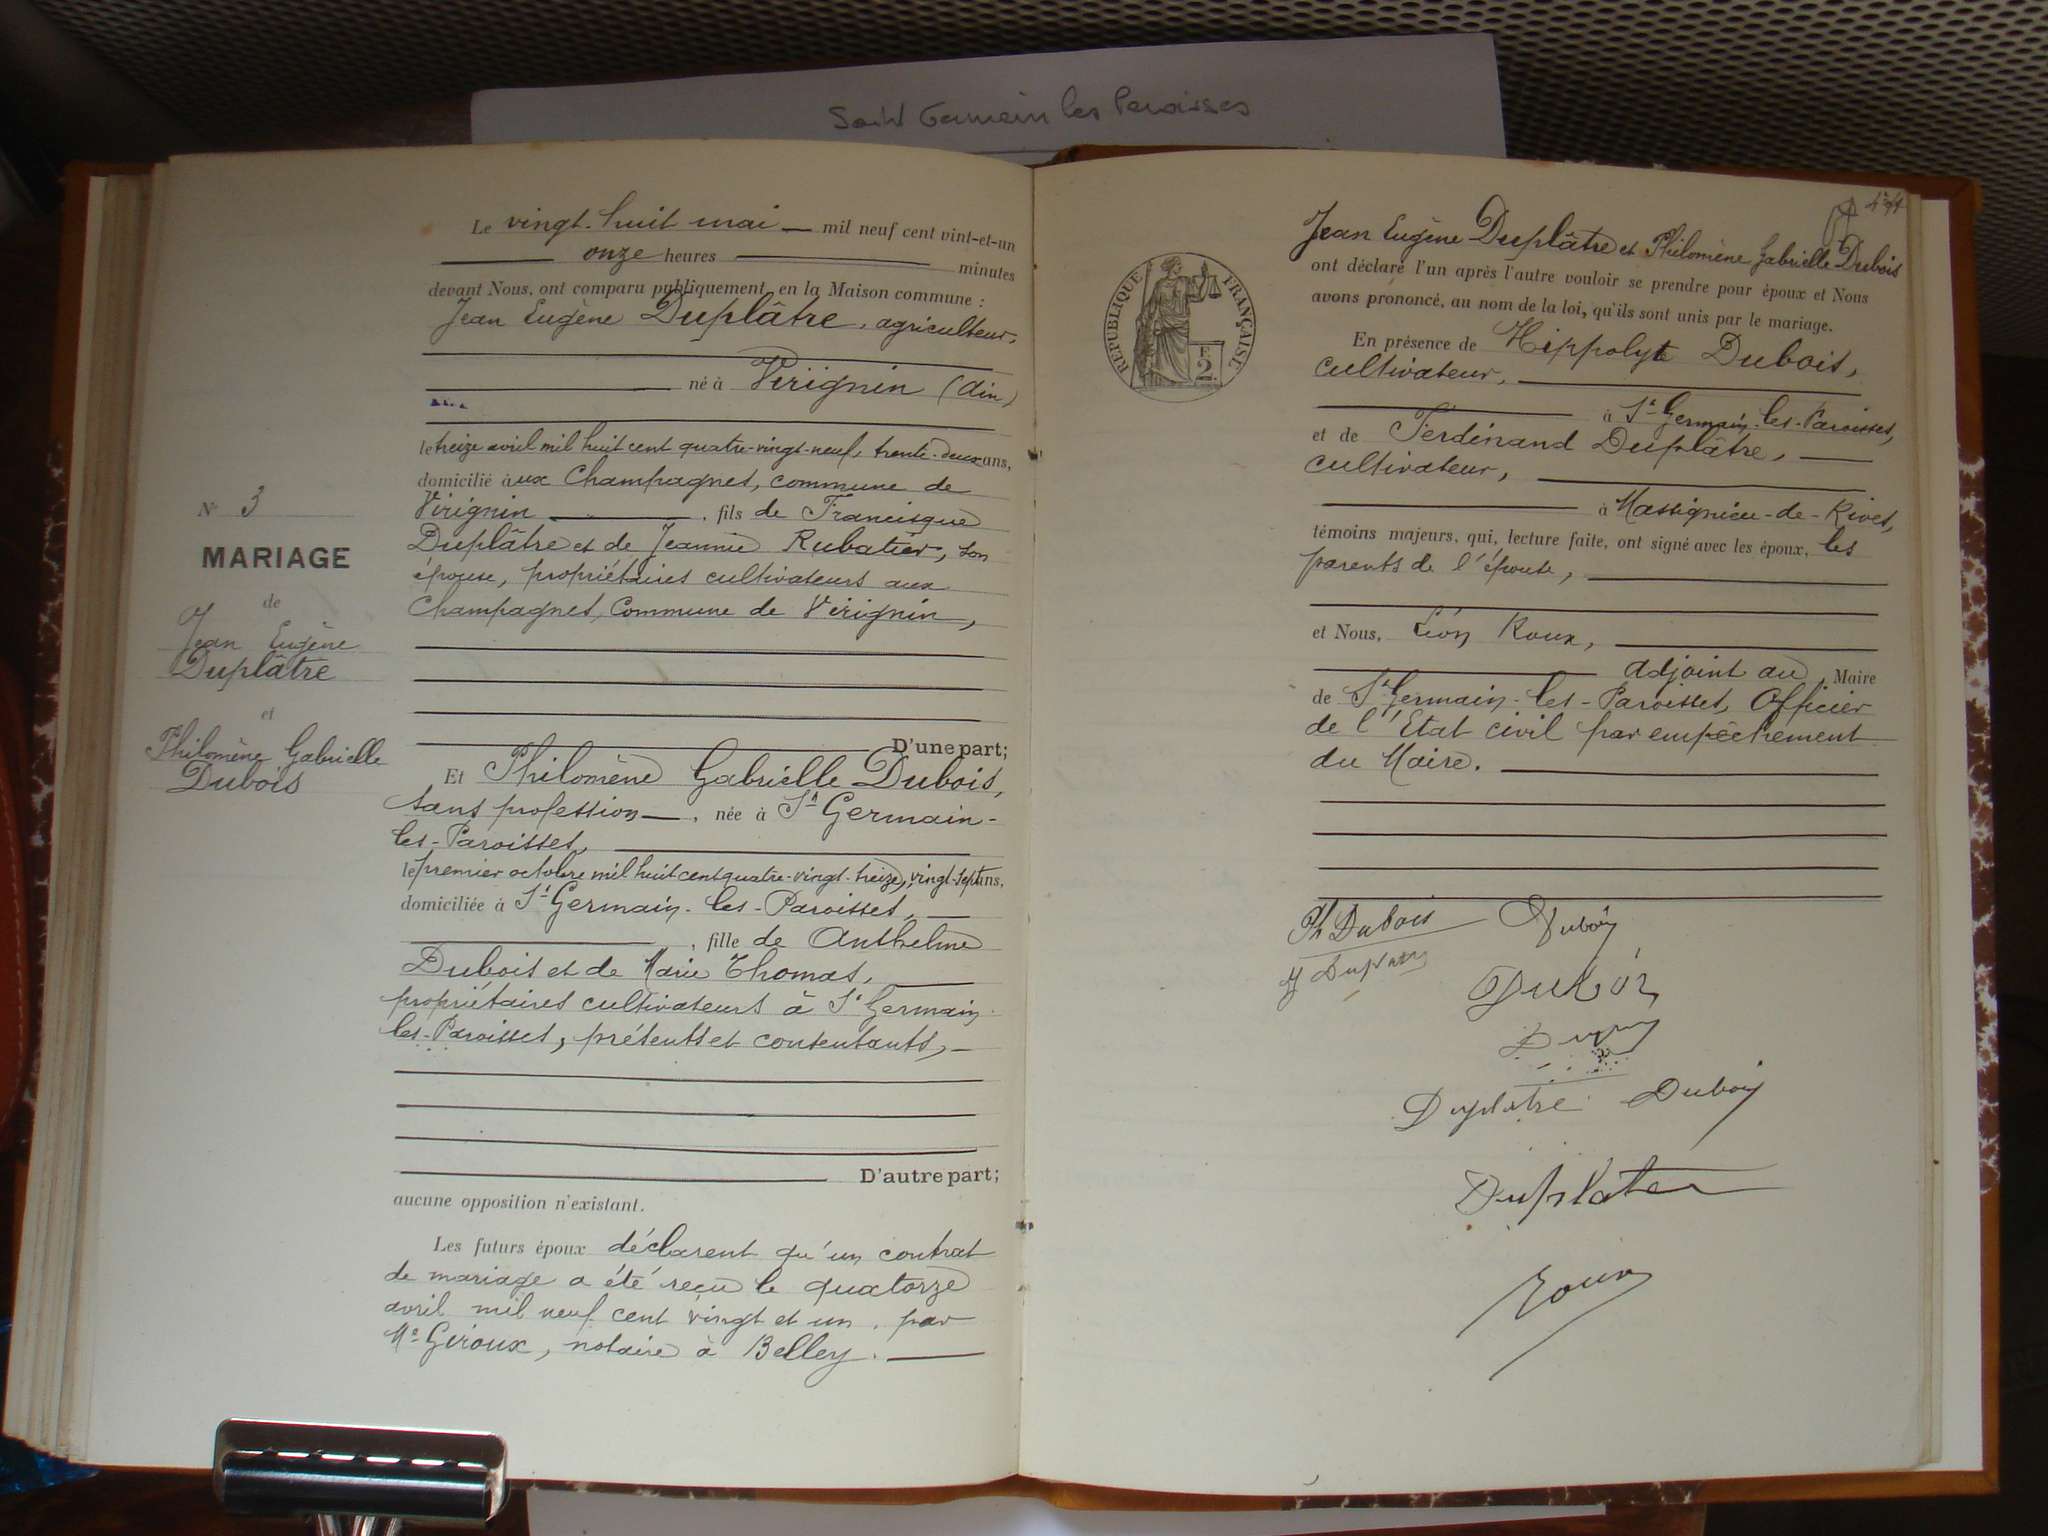 Saint Germain les Paroisses
Le vingt-huit mai mil neuf cent vint-et-un
onze heures minutes
devant Nous, ont comparu publiquement en la Maison commune :
Jean Eugène Duplâtre, agriculteur,
né à Virignin (Ain)
le treize avril mil huit cent quatre-vingt-neuf, trente-deux ans,
domicilié aux Champagnes, commune de
Virignin , fils de Francisque
Duplâtre et de Jeannie Rubatier, son
épouse, propriétaires cultivateurs aux
Champagnes, Commune de Virignin,
D'une part;
Et Philomène Gabrielle Dubois,
sans profession , née à St Germain-
les-Paroisses,
le premier octobre mil huit cent quatre-vingt-treize, vingt-sept ans,
domiciliée à St Germain-les-Paroisses,
, fille de Anthelme
Dubois et de Marie Thomas,
propriétaires cultivateurs à St Germain-
les-Paroisses, présents et consentants,
D'autre part;
aucune opposition n'existant.
Les futurs époux déclarent qu'un contrat
de mariage a été reçu le quatorze
avril mil neuf cent vingt et un, par
Me Giroux, notaire à Belley.
No 3
MARIAGE
de
Jean Eugène
Duplâtre
et
Philomène Gabrielle
Dubois
RÉPUBLIQUE FRANÇAISE
2 F
Jean Eugène Duplâtre et Philomène Gabrielle Dubois
ont déclaré l'un après l'autre vouloir se prendre pour époux et Nous
avons prononcé, au nom de la loi, qu'ils sont unis par le mariage.
En présence de Hippolyte Dubois,
cultivateur,
à St Germain-les-Paroisses,
et de Ferdinand Duplâtre,
cultivateur,
à Massignieu-de-Rives,
témoins majeurs, qui, lecture faite, ont signé avec les époux, les
parents de l'épouse,
et Nous, Léon Roux,
adjoint au Maire
de St Germain-les-Paroisses, Officier
de l'Etat civil par empêchement
du Maire.
Ph Dubois Dubois
Duplatre
Dubois
Duplatre Dubois
Duplatre
Roux